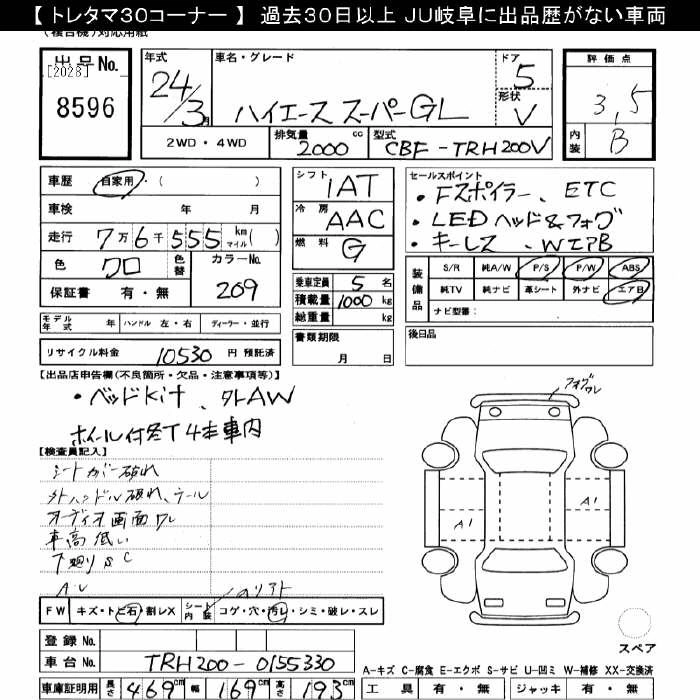 【 トレタマ30コーナー 】 過去30日以上 JU岐阜に出品歴がない車両
(複合機)対応用紙
出品No. [2028] 8596
年式 24/3月
車名・グレード ハイエース スーパーGL
ドア 5
形状 V
評価点 3,5
内装 B
2WD・4WD
排気量 2000 cc
型式 CBF-TRH200V
車歴 自家用・( )
車検 年 月
走行 7万6千555 km マイル( )
色 クロ 色替 カラーNo. 209
保証書 有・無
シフト 1AT
冷房 AAC
燃料 G
乗車定員 5 名
積載量 1000 kg
総重量 kg
セールスポイント
・Fスポイラー、ETC
・LEDヘッド&フォグ
・キーレス ・WエアB
装備品 S/R 純A/W P/S P/W ABS
純TV 純ナビ 革シート 外ナビ エアB
ナビ型番:
モデル年式 年 ハンドル 左・右 ディーラー・並行
書類期限 月 日
後日品
リサイクル料金 10530 円 預託済
【出品店申告欄(不良箇所・欠品・注意事項等)】
・ベッドKit、外AW
ホイール付冬T4本車内
【検査員記入】
シートカバー破れ
外ハンドル破れ、テール
オーディオ画面ワレ
車高低い
下廻りSC
フォグワレ
A1
A1
FW キズ・トビ石・割レX シート内装 コゲ・穴・汚レ・シミ・破レ・スレ
登録No.
車台No. TRH200-0155330
車庫証明用 長さ 469cm 幅 169cm 高さ 193cm
スペア
A-キズ C-腐食 E-エクボ S-サビ U-凹ミ W-補修 XX-交換済
工具 有・無 ジャッキ 有・無